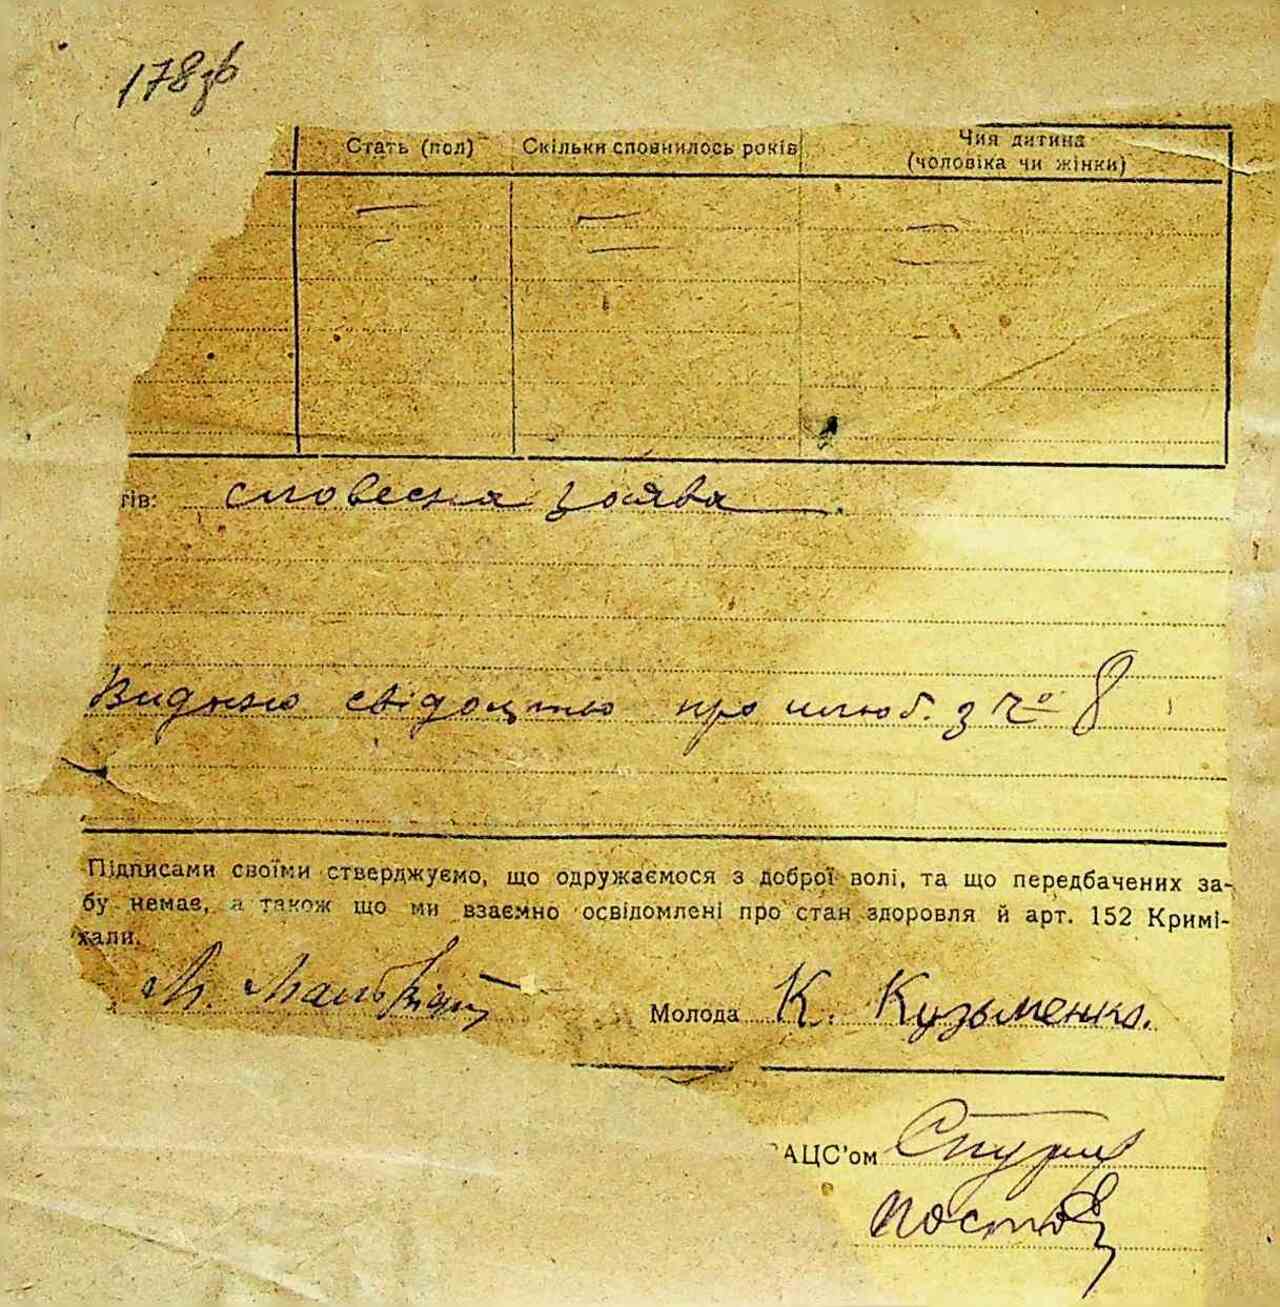 178зв
Стать (пол) Скільки сповнилось років Чия дитина
(чоловіка чи жінки)
тів: словесна заява
Видано свідоцтво про шлюб. з № 8
Підписами своїми стверджуємо, що одружаємося з доброї волі, та що передбачених за-
бу немає, а також що ми взаємно освідомлені про стан здоровля й арт. 152 Кримі-
хали.
М.
Молода К. Кузьменко.
АЦС'ом